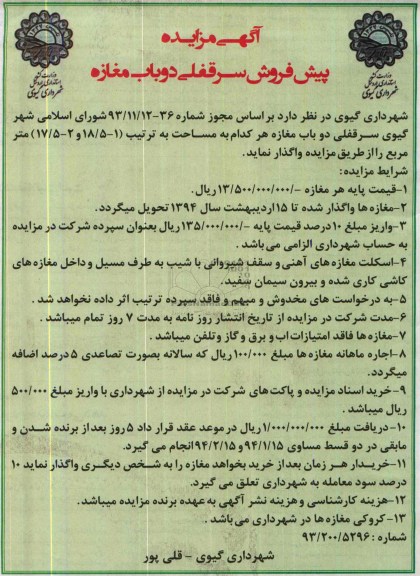 آگهی مزایده
پیش فروش سرقفلی دو باب مغازه
وزارت کشور
شهرداری گیوی
وزارت کشور
شهرداری گیوی
شهرداری گیوی در نظر دارد بر اساس مجوز شماره ۳۶-۹۳/۱۱/۱۲ شورای اسلامی شهر
گیوی سرقفلی دو باب مغازه هر کدام به مساحت به ترتیب (۱-۱۸/۵ و ۲-۱۷/۵) متر
مربع را از طریق مزایده واگذار نماید.
شرایط مزایده:
۱-قیمت پایه هر مغازه -/۱۳/۵۰۰/۰۰۰/۰۰۰ ریال.
۲-مغازه ها واگذار شده تا ۱۵ اردیبهشت سال ۱۳۹۴ تحویل میگردد.
۳-واریز مبلغ ۱۰ درصد قیمت پایه -/۱۳۵/۰۰۰/۰۰۰ ریال بعنوان سپرده شرکت در مزایده
به حساب شهرداری الزامی می باشد .
۴-اسکلت مغازه های آهنی و سقف شیروانی با شیب به طرف مسیل و داخل مغازه های
کاشی کاری شده و بیرون سیمان سفید.
۵-به درخواست های مخدوش و مبهم و فاقد سپرده ترتیب اثر داده نخواهد شد .
۶-مدت شرکت در مزایده از تاریخ انتشار روز نامه به مدت ۷ روز تمام میباشد .
۷-مغازه ها فاقد امتیازات اب و برق و گاز و تلفن میباشد .
۸-اجاره ماهانه مغازه ها مبلغ ۱۰۰/۰۰۰ ریال که سالانه بصورت تصاعدی ۵ درصد اضافه
میگردد.
۹-خرید اسناد مزایده و پاکت های شرکت در مزایده از شهرداری با واریز مبلغ ۵۰۰/۰۰۰
ریال میباشد .
۱۰-دریافت مبلغ ۱/۰۰۰/۰۰۰/۰۰۰ ریال در موعد عقد قرار داد ۵ روز بعد از برنده شدن و
مابقی در دو قسط مساوی ۹۴/۱/۱۵ و ۹۴/۲/۱۵ انجام می گیرد.
۱۱-خریدار هر زمان بعد از خرید بخواهد مغازه را به شخص دیگری واگذار نماید ۱۰
درصد سود معامله به شهرداری تعلق می گیرد.
۱۲-هزینه کارشناسی و هزینه نشر آگهی به عهده برنده مزایده میباشد.
۱۳-کروکی مغازه ها در شهرداری می باشد .
شماره : ۹۳/۲۰۰/۵۲۹۶
شهرداری گیوی - قلی پور